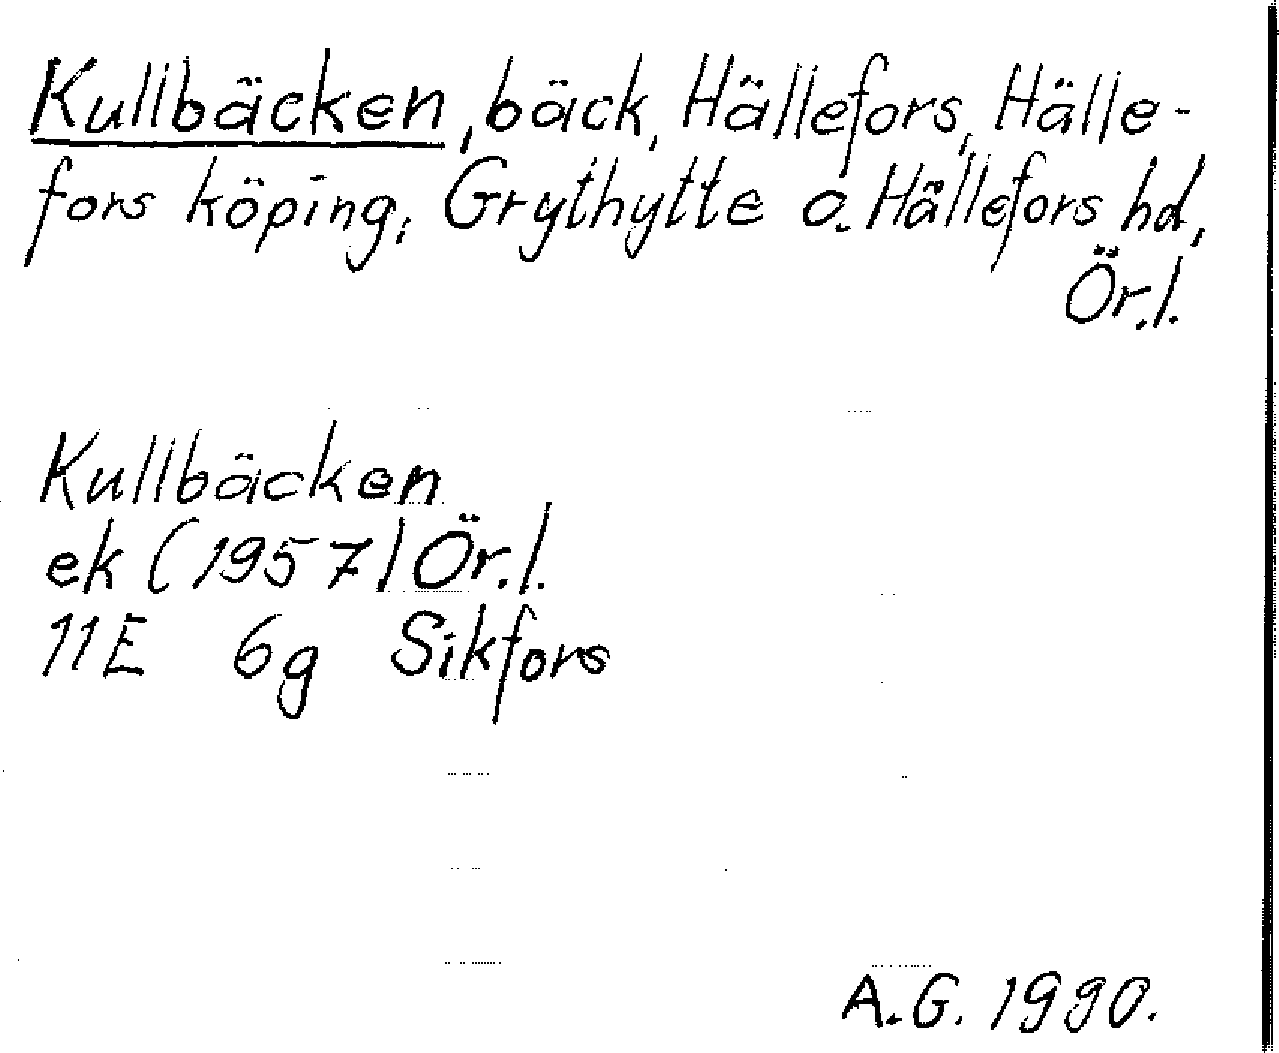 Kullbäcken, bäck, Hällefors, Hälle-
fors köping, Grythytte o. Hällefors hd,
Ör.l.
Kullbäcken
ek (1957) Ör.l.
11E 6g Sikfors
A.G. 1990.